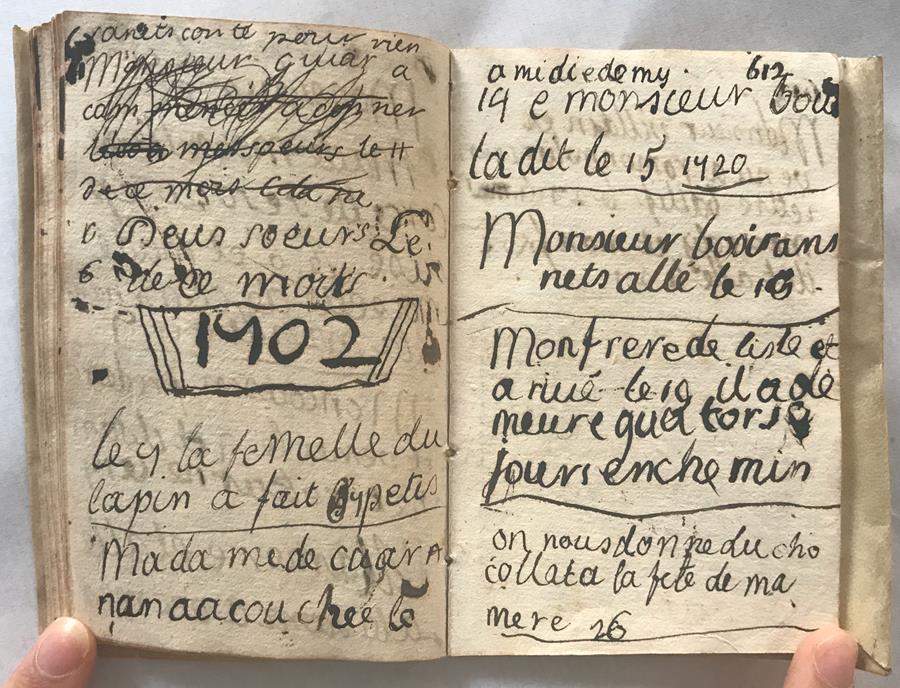 sanets conté pour rien
Monsieur guiar a
commencé a donner
mes soeurs le 11
de ce mois
Deus soeurs Le
6 de ce mois
1702
le 7 la femelle du
lapin a fait petis
Madame de cagar A
nan a acouchée le
a midi e demy. 612
19 e monsieur
la dit le 15 1720
Monsieur bosirans
nets allé le 16.
Monfrere de lisle et
a rivé le 19 il a dé
meure quatorse
jours en chemin
on nous donne du cho
collat a la fete de ma
mere 26